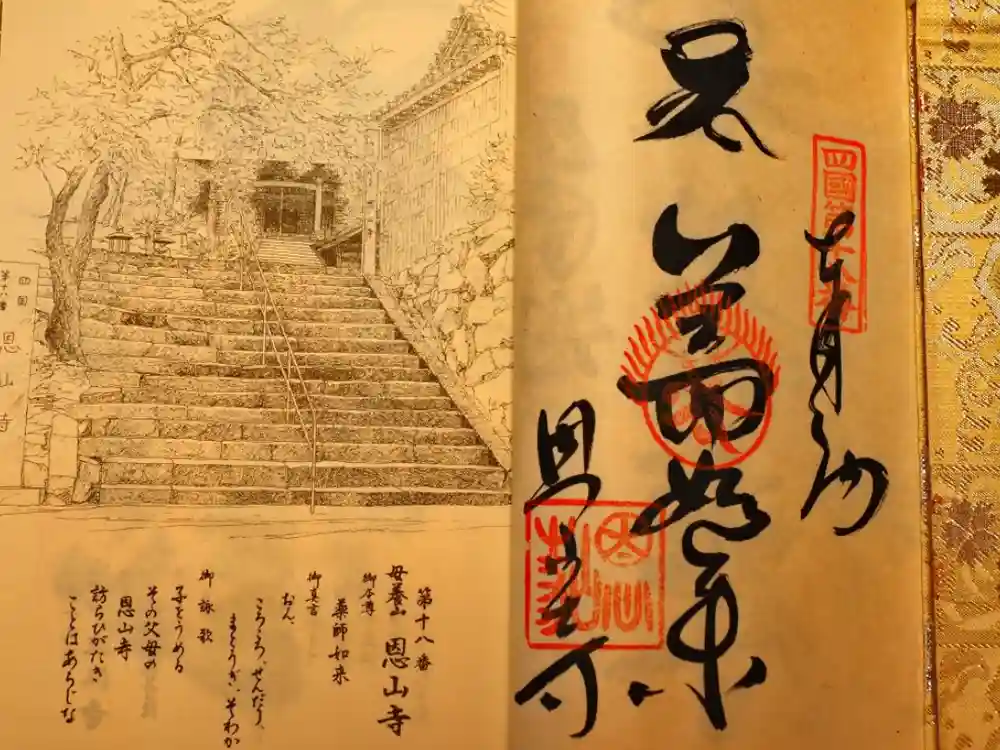 四国
第十八番
恩山寺
第十八番
母養山 恩山寺
御本尊
薬師如来
御真言
おん、
ころころ、せんだり、
まとうぎ、そわか
御詠歌
子をうめる
その父母の
恩山寺
訪らひがたき
ことはあらじな
四國第十八番
奉納
如来
恩山寺